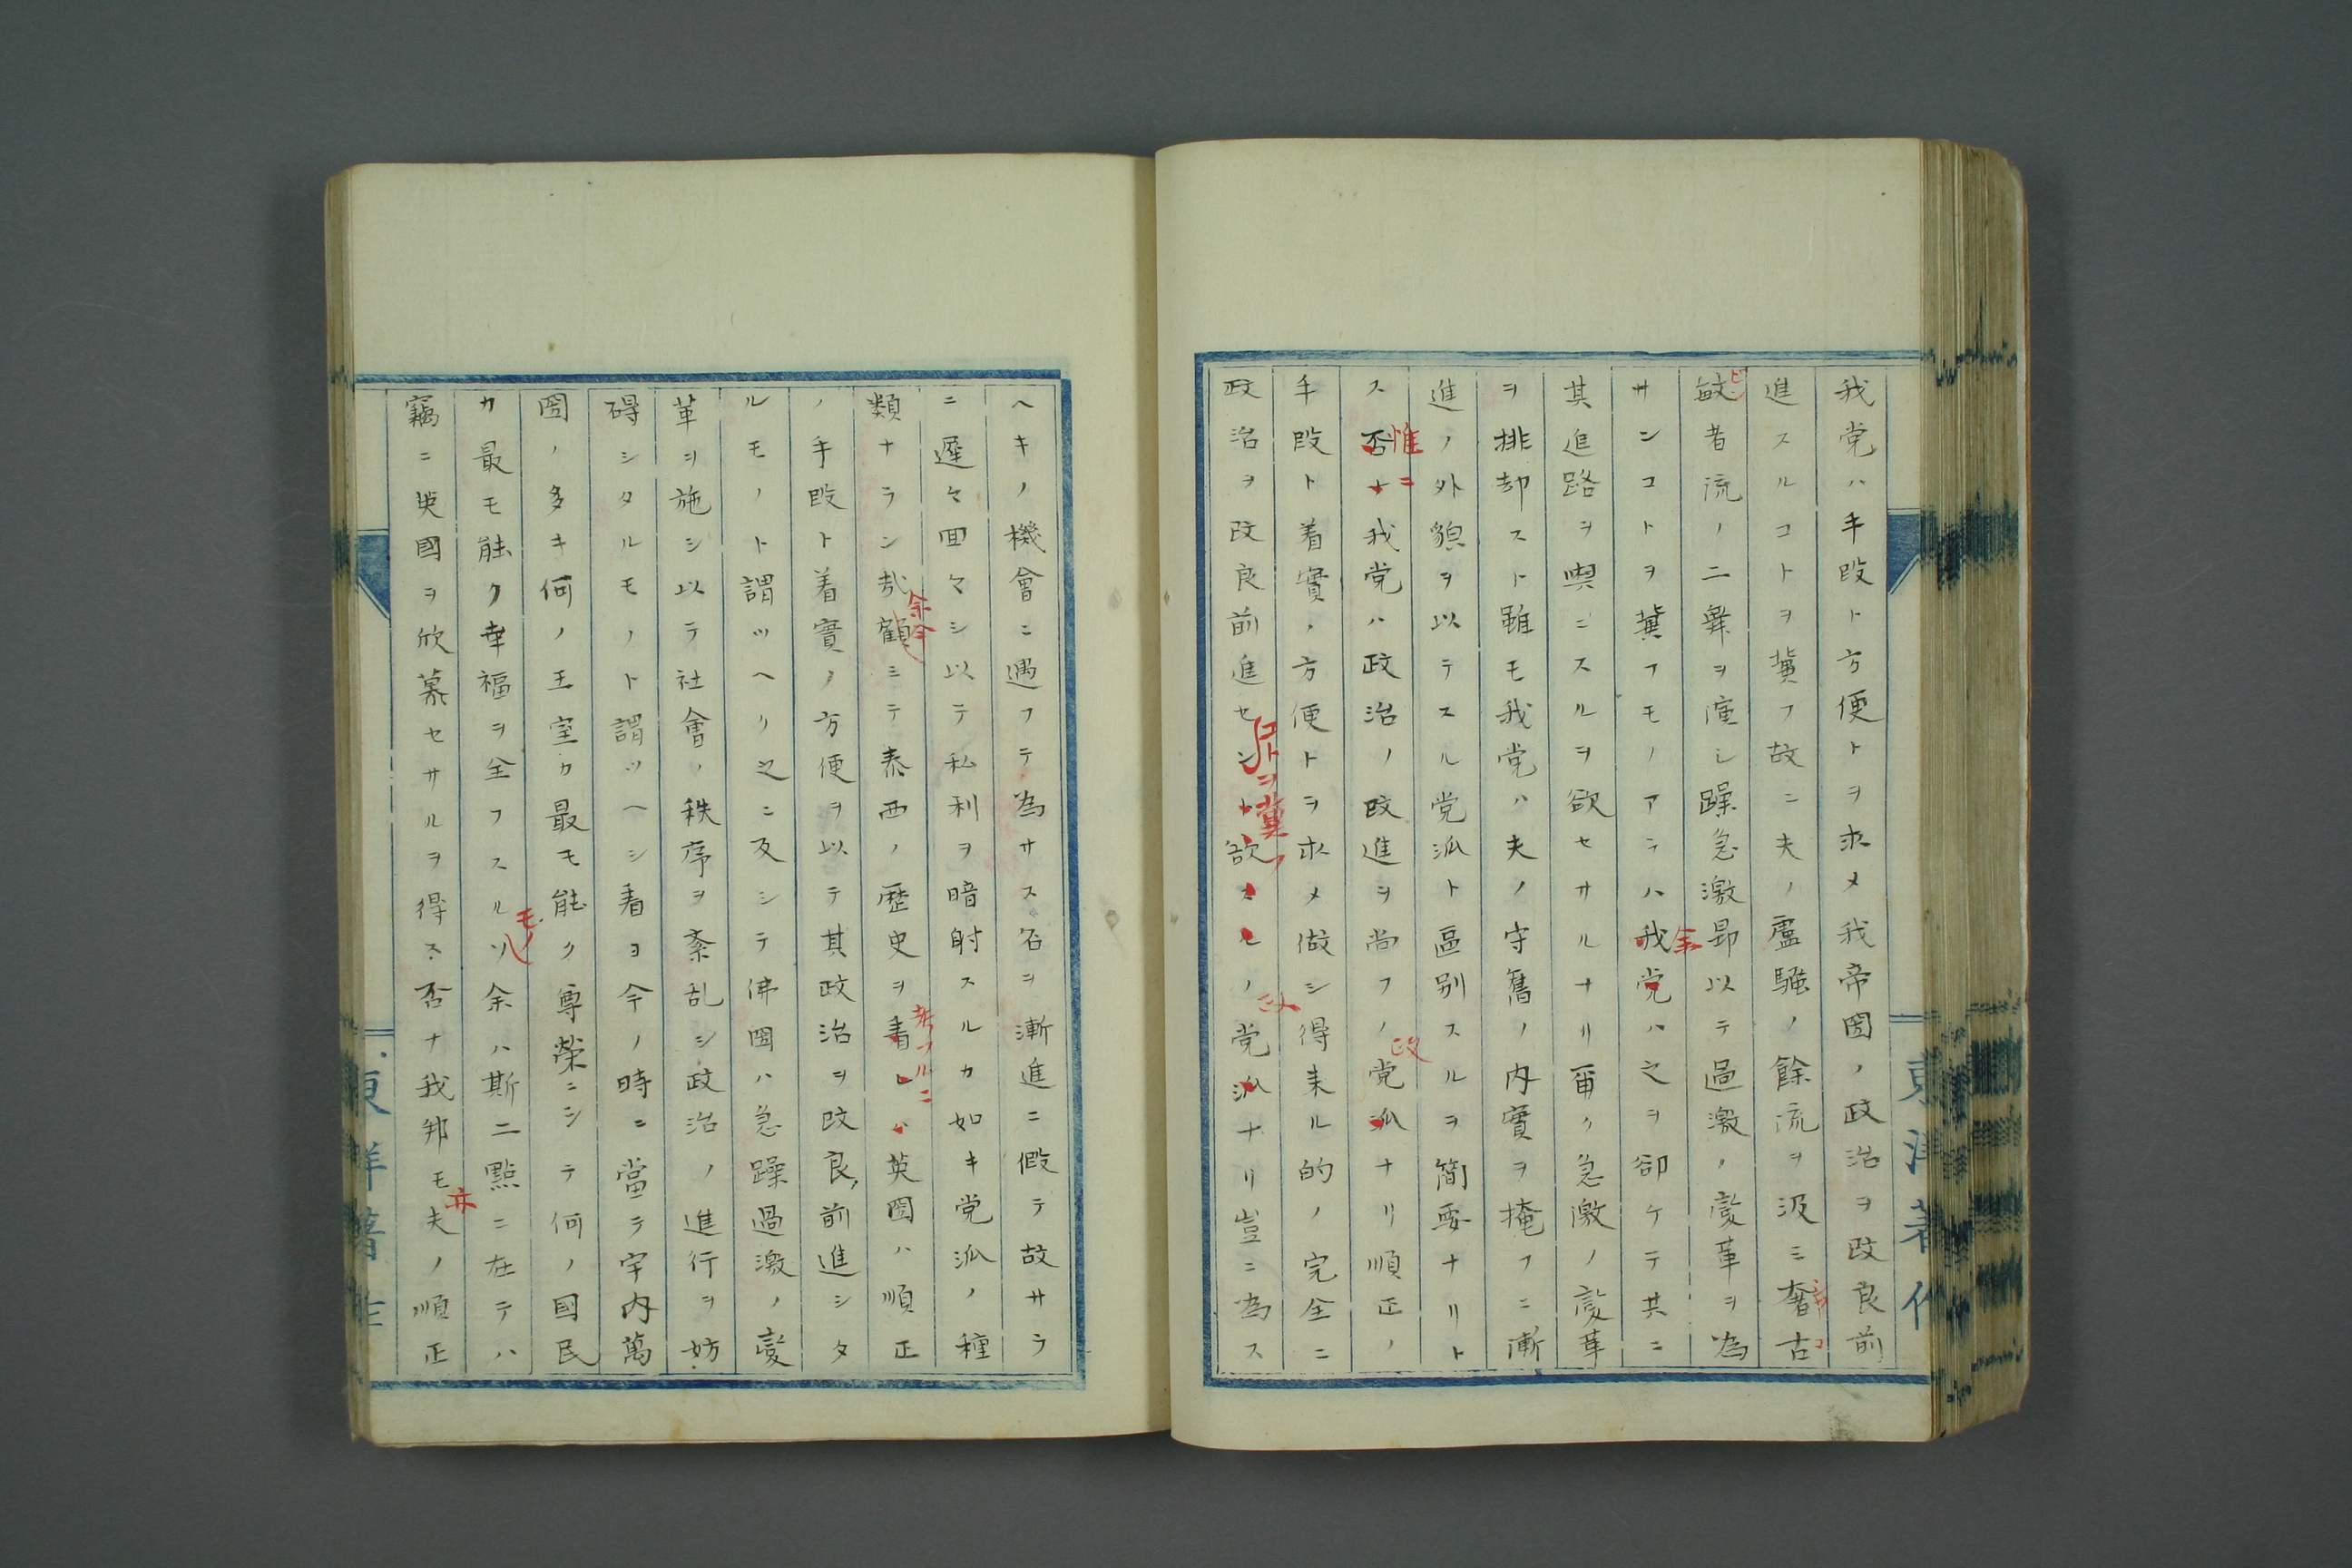 我党ハ手段ト方便トヲ求メ我帝国ノ政治ヲ改良前
進スルコトヲ冀フ故ニ夫ノ盧騒ノ餘流ヲ汲ミ奢古
敏者流ノ二舞ヲ演シ躁急激昂以テ過激ノ変革ヲ為
サンコトヲ冀フモノアラハ我党ハ之ヲ卻ケテ其ニ
余
其進路ヲ與ニスルヲ欲セサルナリ爾ク急激ノ変革
ヲ排却スト雖モ我党ハ夫ノ守舊ノ内實ヲ掩フニ漸
進ノ外貌ヲ以テスル党派ト區別スルヲ簡要ナリト
ス否ナ我党ハ政治ノ改進ヲ尚フノ党派ナリ順正ノ
惟ニ
政
手段ト着實ノ方便トヲ求メ做シ得来ル的ノ完全ニ
政治ヲ改良前進セント欲スルノ党派ナリ豈ニ為ス
コトヲ冀フ
政
ヘキノ機會ニ遇フテ為サス名ヲ漸進ニ假テ故サラ
ニ遅々囬々シ以テ私利ヲ暗射スルカ如キ党派ノ種
類ナランヤ顧ミテ泰西ノ歴史ヲ看レハ英国ハ順正
余今
ノ手段ト着實ノ方便ヲ以テ其政治ヲ改良前進シタ
ルモノト謂ツヘリ之ニ反シテ佛国ハ急躁過激ノ変
革ヲ施シ以テ社會ノ秩序ヲ紊乱シ政治ノ進行ヲ妨
碍シタルモノト謂ツヘシ看ヨ今ノ時ニ當テ宇内萬
国ノ多キ何ノ王室カ最モ能ク尊榮ニシテ何ノ國民
カ最モ能ク幸福ヲ全フスルソ余ハ斯二點ニ在テハ
モノ
竊ニ英國ヲ欣慕セサルヲ得ス否ナ我邦モ夫ノ順正
亦
東洋著作
東洋著作